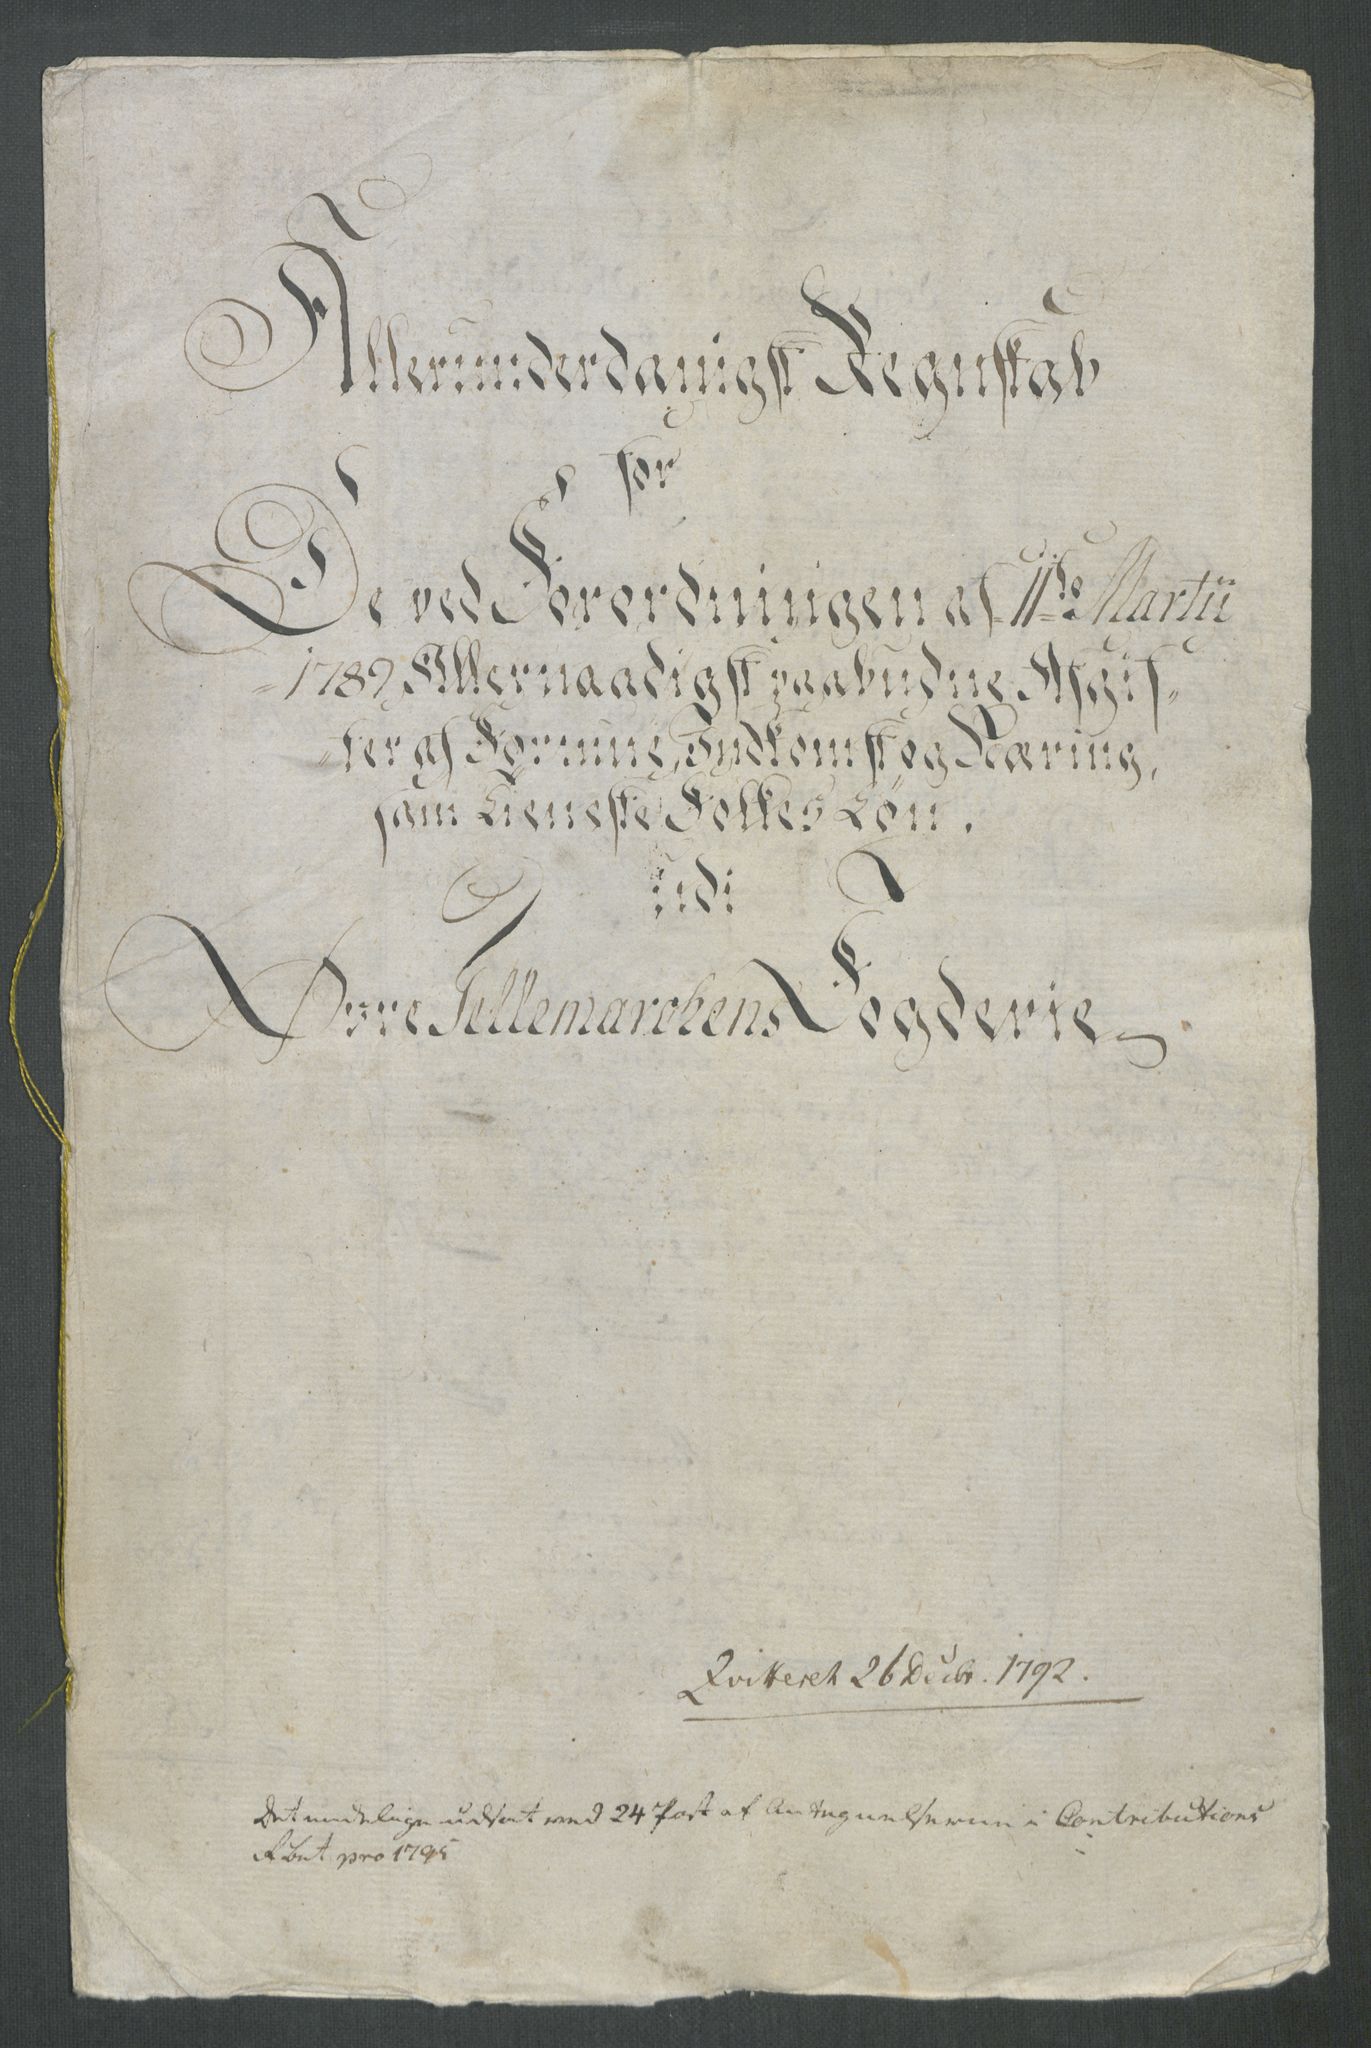 Allerunderdanigst Regnskab
for
De ved Forordningen af 11te Martii
1789 Allernaadigst paabudne Afgif-
ter af Formue, Indkomst og Næring,
samt Tieneste Folkes Løn.
udi
Øvre Tellemarchens Fogderie
Qvitteret 26 Decbr. 1792.
Det endelige udsat med 24 Post af Antegnelserne i Contributions
pro 1795